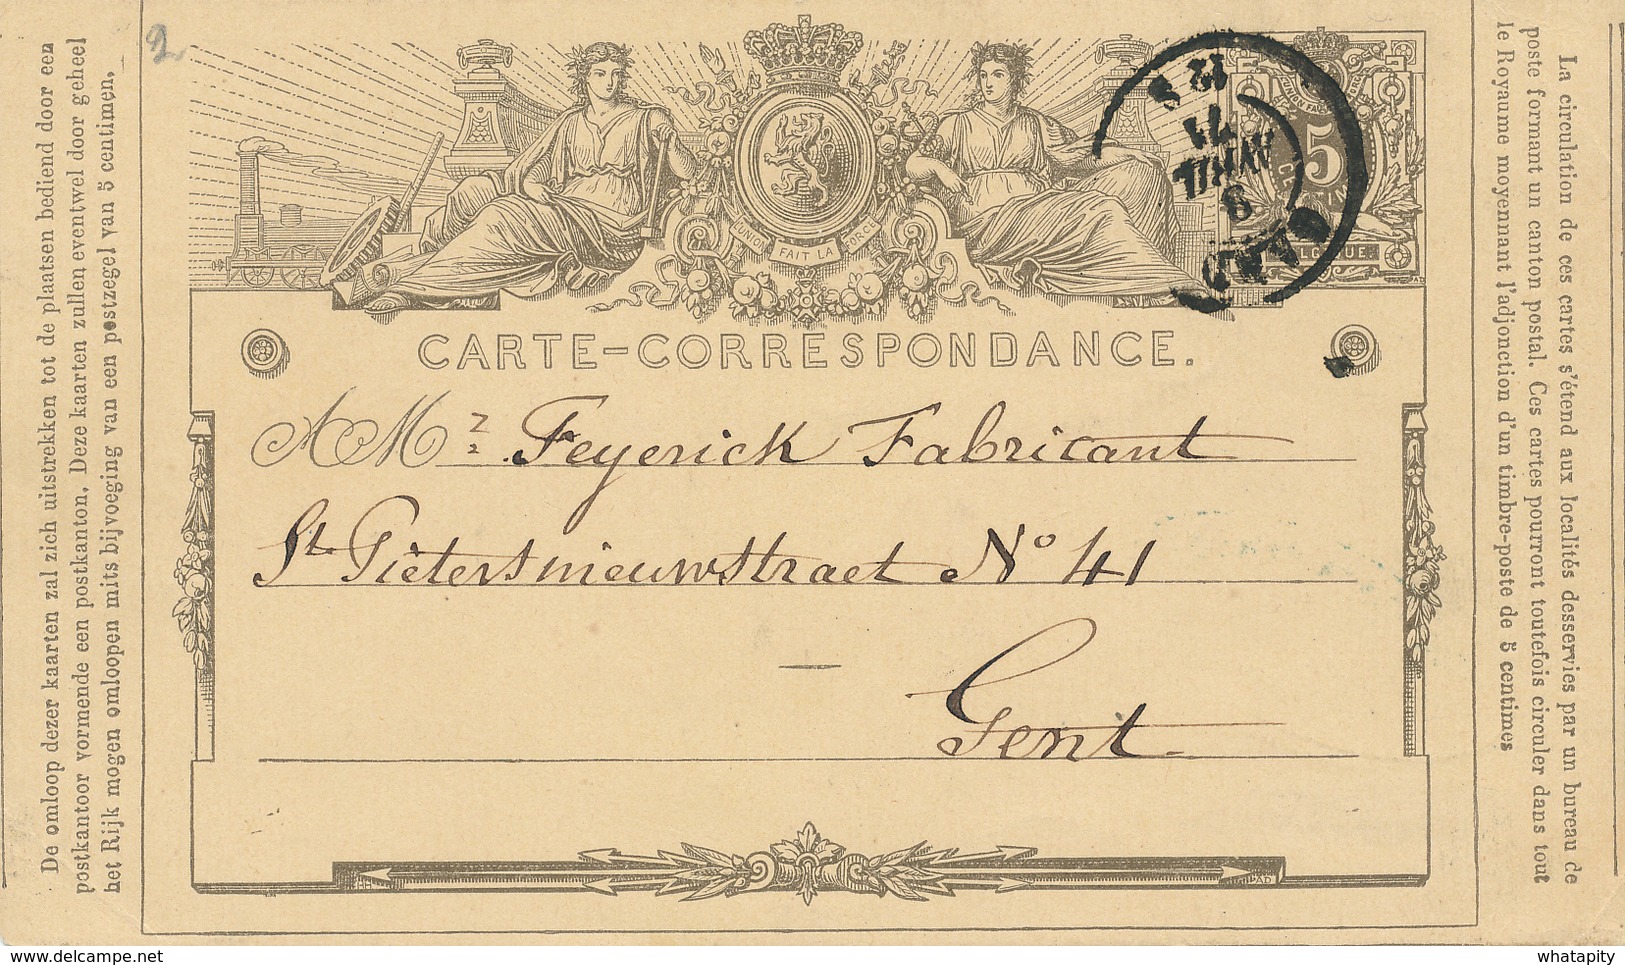 De omloop dezer kaarten zal zich uitstrekken tot de plaatsen bediend door een
postkantoor vormende een postkanton. Deze kaarten zullen eventwel door geheel
het Rijk mogen omloopen mits bijvoeging van een postzegel van 5 centimen.
2
L'UNION FAIT LA FORCE
5
BELGIQUE
GAND
9
AVRIL
71
12 S
CARTE-CORRESPONDANCE.
A Mr Feyerick Fabricant
St Pietersnieuwstraet No 41
Gent
AD
La circulation de ces cartes s'étend aux localités desservies par un bureau de
poste formant un canton postal. Ces cartes pourront toutefois circuler dans tout
le Royaume moyennant l'adjonction d'un timbre-poste de 5 centimes
whatapity